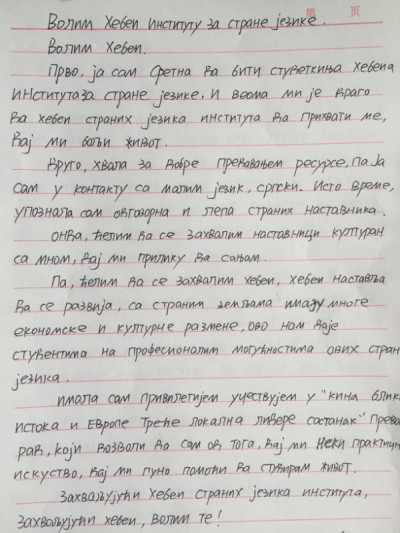 第 页
Волим Хебеп Институту за стране језике.
Волим Хебеп.
Прво, ја сам сретна да бити студеткиња Хебепа
института за стране језике, и веома ми је драго
да хебеп страних језика института да прихвати ме,
дај ми бољи живот.
Друго, хвала за добре предавањем ресурсе, па ја
сам у контакту са малим језик, српски. Исто време,
упознала сам одгозорна и лепа страних наставника.
онда, ћелим да се захвалим наставници културан
са мном, дај ми прилику да сањам.
Па, ћелим да се захвалим хебеп, хебеп наставља
да се развија, са страним земљама имају многе
економске и културне размене, ово нам даје
студентима на професионалим могућностима ових стран
језика.
имала сам привилегијем учествујем у "кина блик
истока и Европе Треће локална лидере састанак" Прево
рад, који дозволи до сам од тога, дај ми неки практичн
искуство, дај ми пуно помоћи да студирам живот.
Захваљујући Хебеп страних језика института,
захваљујући хебеп, волим те!